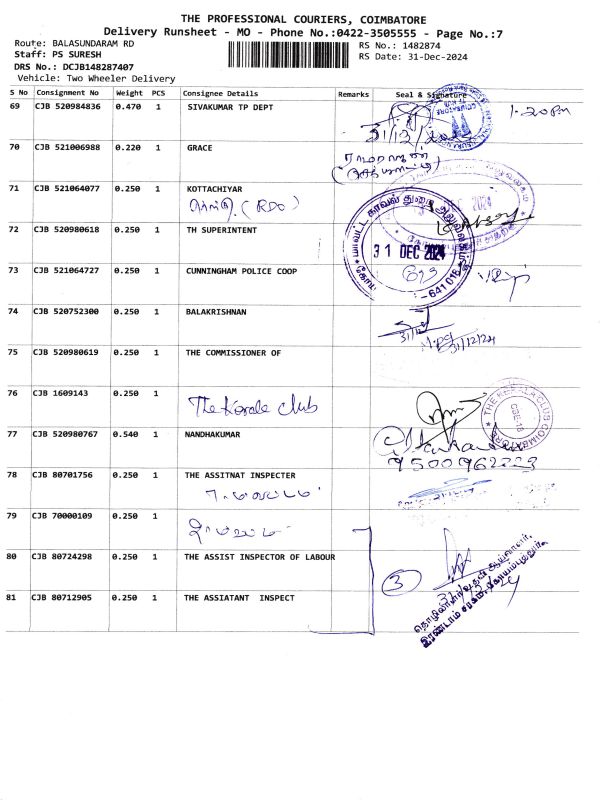 THE PROFESSIONAL COURIERS, COIMBATORE
Delivery Runsheet - MO - Phone No.:0422-3505555 - Page No.:7
Route: BALASUNDARAM RD
RS No.: 1482874
Staff: PS SURESH
RS Date: 31-Dec-2024
DRS No.: DCJB148287407
Vehicle: Two Wheeler Delivery
S No Consignment No Weight PCS Consignee Details Remarks Seal & Signature
69 CJB 520984836 0.470 1 SIVAKUMAR TP DEPT
1.20 Pm
31/12/
70 CJB 521006988 0.220 1 GRACE
71 CJB 521064077 0.250 1 KOTTACHIYAR
(RDO)
72 CJB 520980618 0.250 1 TH SUPERINTENT
மாவட்ட காவல் துறை அலுவலகம்
31 DEC 2024
641 018
73 CJB 521064727 0.250 1 CUNNINGHAM POLICE COOP
74 CJB 520752300 0.250 1 BALAKRISHNAN
31/12/24
75 CJB 520980619 0.250 1 THE COMMISSIONER OF
76 CJB 1609143 0.250 1
The Kerala Club
THE KERALA CLUB
COIMBATORE
CBE-18
77 CJB 520980767 0.540 1 NANDHAKUMAR
9500962223
78 CJB 80701756 0.250 1 THE ASSITNAT INSPECTER
79 CJB 70000109 0.250 1
80 CJB 80724298 0.250 1 THE ASSIST INSPECTOR OF LABOUR
3
81 CJB 80712905 0.250 1 THE ASSIATANT INSPECT